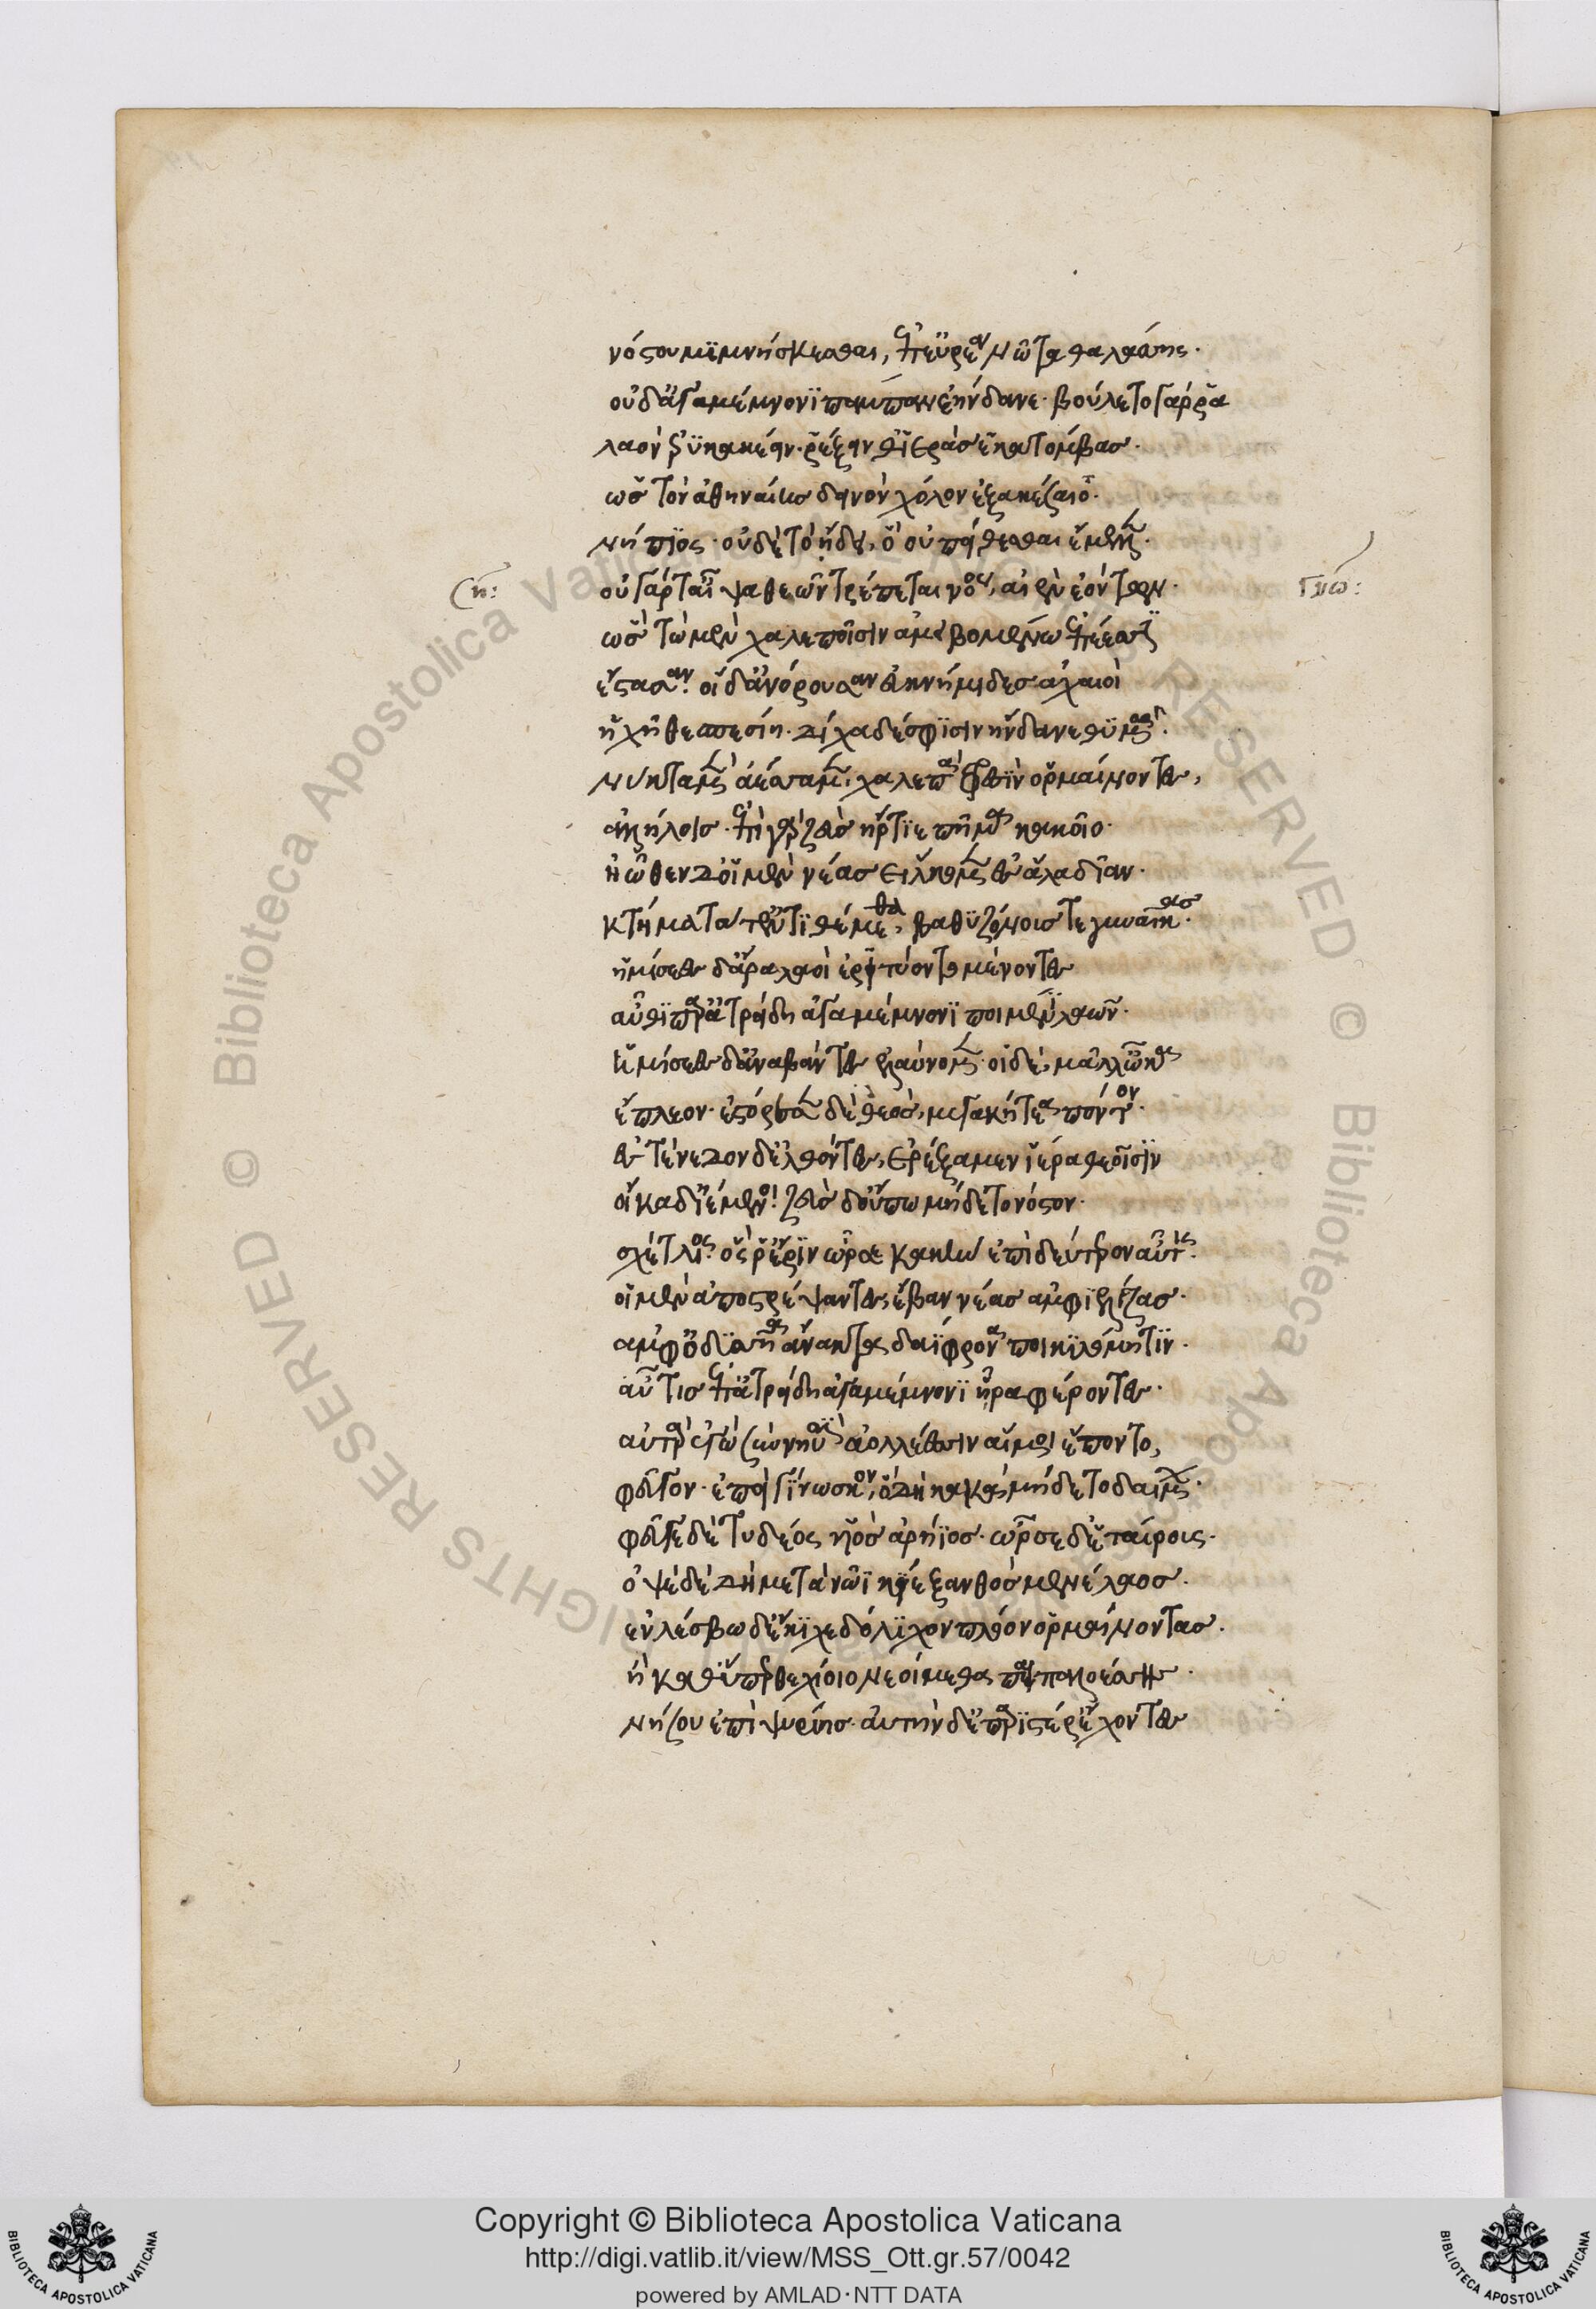 νόστου μιμνήσκεσθαι, ἐπ' εὐρέα νῶτα θαλάσσης.
οὐδ' ἀγαμέμνονι πάμπαν ἑήνδανε· βούλετο γάρ ῥα
λαὸν ἐρυκακέειν. ῥέξαι θ' ἱερὰς ἑκατόμβας.
ὡς τὸν ἀθηναίης δεινὸν χόλον ἐξακέσαιτο.
νήπιος· οὐδὲ τὸ ἤδη, ὃ οὐ πείσεσθαι ἔμελλεν.
οὐ γάρ τ' αἶψα θεῶν τρέπεται νόος, αἰὲν ἐόντων.
ὣς τὼ μὲν χαλεποῖσιν ἀμειβομένω ἐπέεσσιν
ἕστασαν. οἱ δ' ἀνόρουσαν ἐϋκνήμιδες ἀχαιοὶ
ἠχῇ θεσπεσίῃ. δίχα δέ σφισιν ἥνδανε θυμός.
νύκτα μὲν ἀέσαμεν, χαλεπὰ φρεσὶν ὁρμαίνοντες,
ἀλλήλοις. ἐπὶ γὰρ ζεὺς ἤρτυε πῆμα κακοῖο.
ἠῶθεν δ' οἱ μὲν νέας εἵλκομεν εἰς ἅλα δῖαν.
κτήματά τ' ἐντιθέμεσθα, βαθυζώνους τε γυναῖκας.
ἡμίσεες δ' ἄρα λαοὶ ἐρητύοντο μένοντες
αὖθι παρ' ἀτρείδῃ ἀγαμέμνονι ποιμένι λαῶν.
ἡμίσεες δ' ἀναβάντες ἐλαύνομεν· οἱ δὲ, μάλ' ὦκα
ἔπλεον. ἐστόρεσεν δὲ θεὸς, μεγακήτεα πόντον.
ἐς τένεδον δ' ἐλθόντες, ἐρέξαμεν ἱερὰ θεοῖσιν
οἴκαδε ἱέμενοι. ζεὺς δ' οὔπω μήδετο νόστον.
σχέτλιος. ὅς ῥ' ἔριν ὦρσε κακὴν ἐπὶ δεύτερον αὖτις.
οἱ μὲν ἀποστρέψαντες, ἔβαν νέας ἀμφιελίσσας.
ἀμφ' ὀδυσῆα ἄνακτα δαΐφρονα ποικιλομήτην.
αὖτις ἐπ' ἀτρείδῃ ἀγαμέμνονι ἦρα φέροντες.
αὐτὰρ ἐγὼ σὺν νηυσὶν ἀολλέσιν αἵ μοι ἕποντο,
φεῦγον. ἐπεὶ γίνωσκον, ὃ δὴ κακὰ μήδετο δαίμων.
φεῦγε δὲ τυδέος υἱὸς ἀρήϊος. ὦρσε δ' ἑταίρους.
ὀψὲ δὲ δὴ μετὰ νῶϊ κίε ξανθὸς μενέλαος.
ἐν λέσβω δ' ἔκιχε δολιχὸν πλόον ὁρμαίνοντας.
ἢ καθύπερθε χίοιο νεοίμεθα παιπαλοέσσης.
νήσου ἐπὶ ψυρίης. αὐτὴν δ' ἐπ' ἀριστέρ' ἔχοντες